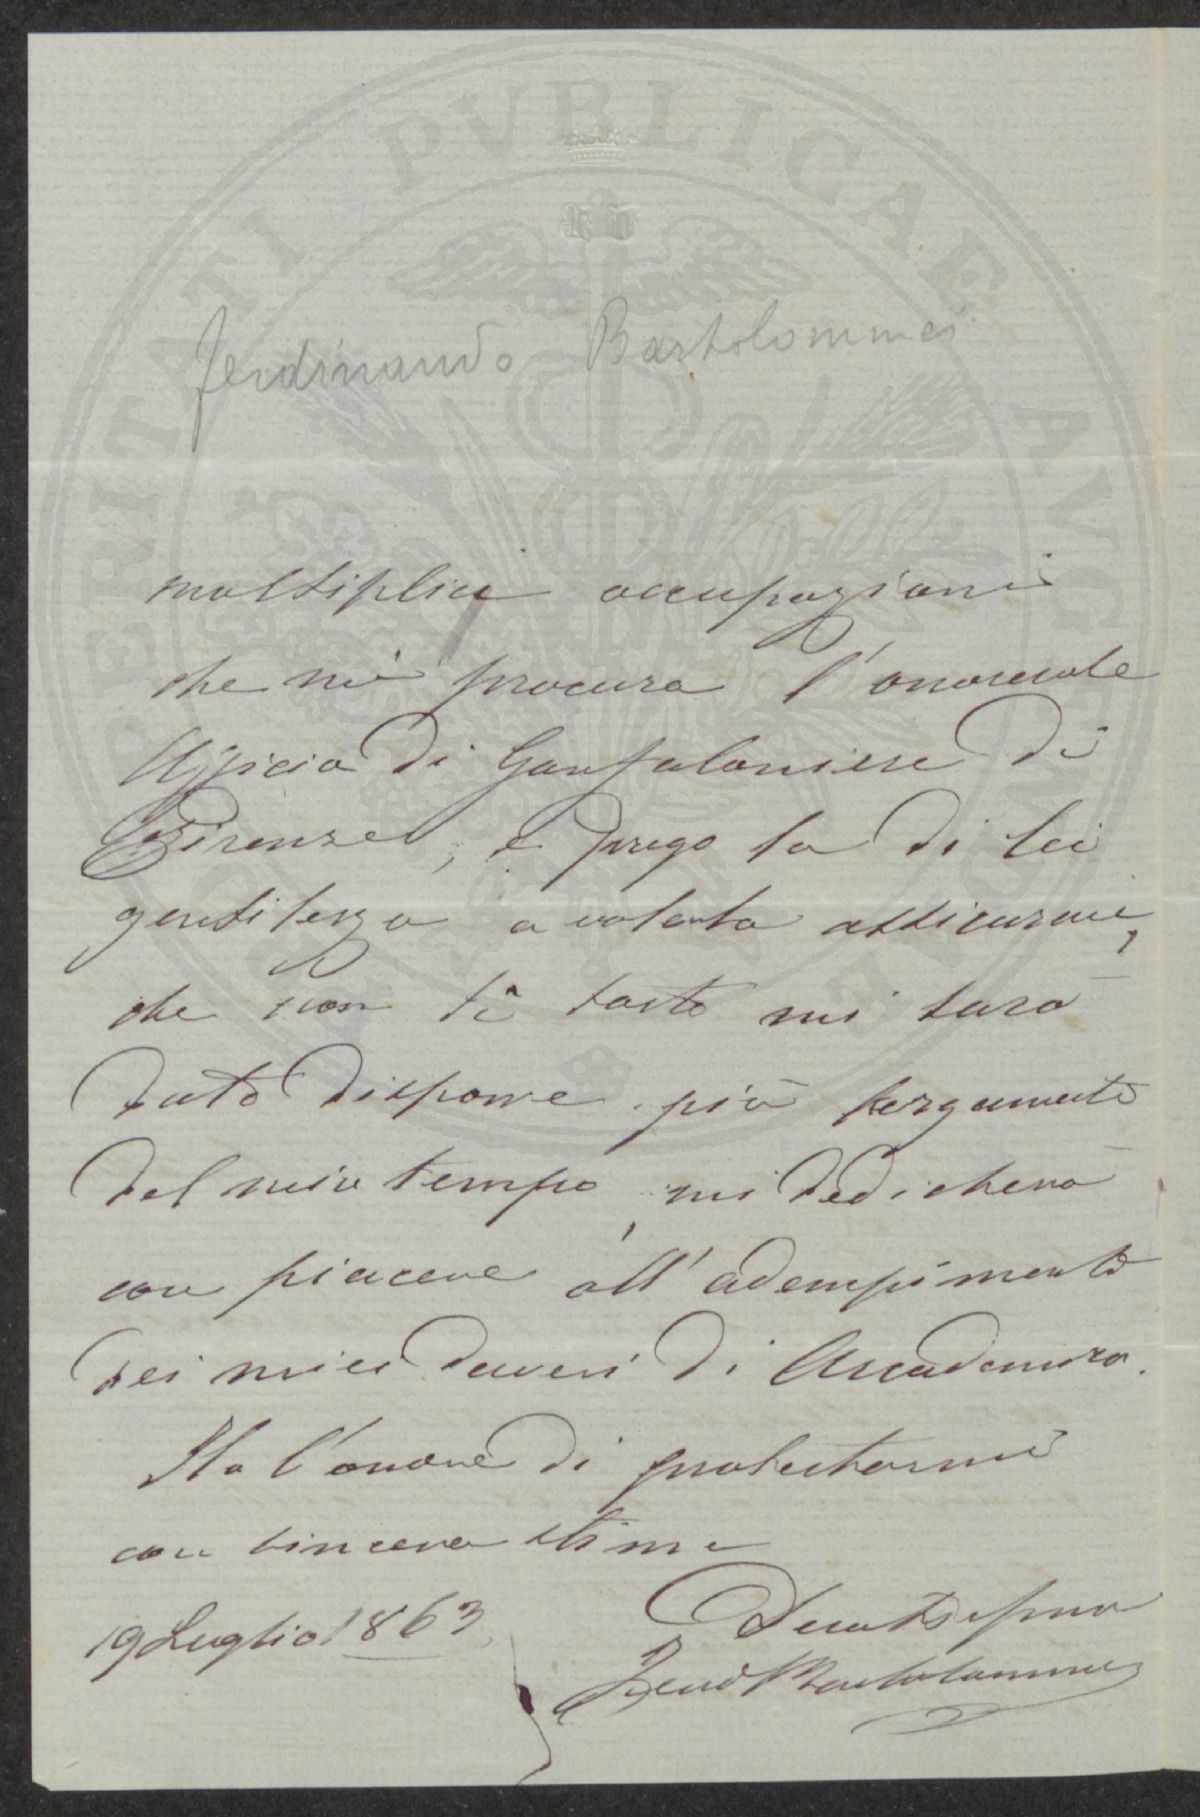 PROSPERITATI PVBLICAE AVGENDAE
Ferdinando Bartolommei
moltiplici occupazioni
che mi procura l'onorevole
Uficio di Gonfaloniere di
Firenze, e prego la di lei
gentilezza a volerla assicurare,
che non sì tosto mi sarà
dato disporre più largamente
del mio tempo, mi dedicherò
con piacere all'adempimento
dei miei doveri di Accademico.
Ho l'onore di protestarmi
con sincera stima
19 Luglio 1863
Ferd Bartolommei